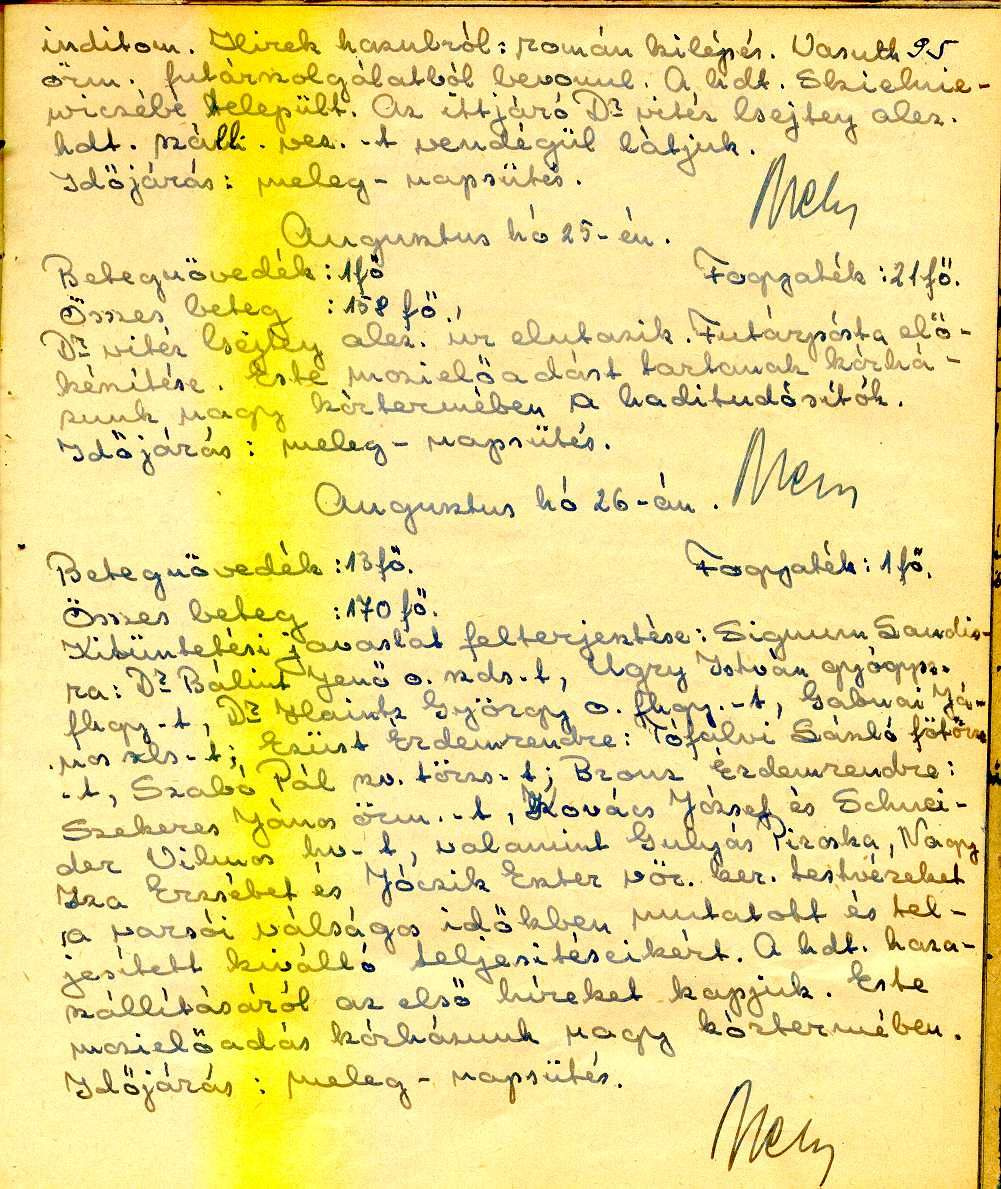 inditom. Hirek hazulról: román kilépés. Vasuth 95
őrm. futárszolgálatból bevonul. A hdt. Skielnie-
wiczébe települt. Az ittjáró Dr vitéz Csejtey alez.
hdt. száll. vez. -t vendégül látjuk.
Időjárás: meleg - napsütés.
Augusztus hó 25-én.
Betegnövedék: 1 fő Fogyaték: 21 fő.
Összes beteg : 158 fő.
Dr vitéz Csejtey alez. úr elutazik. Futárpósta elő-
készítése. Este mozielőadást tartanak kórhá-
zunk nagy kórtermében a haditudósítók.
Időjárás: meleg - napsütés.
Augusztus hó 26-án.
Betegnövedék: 13 fő. Fogyaték: 1 fő.
Összes beteg : 170 fő.
Kitüntetési javaslat felterjesztése: Signum Laudis-
ra: Dr Bálint Jenő o. szds-t, Ugry István gyógysz.
fhgy-t, Dr Haintz György o. fhgy.-t, Gábnai Já-
nos szls-t; Ezüst Érdemrendre: Tófalvi László főtörm
-t, Szabó Pál sv. törzs-t; Bronz Érdemrendre:
Szekeres János őrm.-t, Kovács József és Schnei-
der Vilmos hv-t, valamint Gulyás Piroska, Nagy
Iza Erzsébet és Jóczik Eszter vör. ker. testvéreket
a varsói válságos időkben mutatott és tel-
jesített kiválló teljesítéseikért. A hdt. haza-
szállításáról az első híreket kapjuk. Este
mozielőadás kórházunk nagy kórtermében.
Időjárás: meleg - napsütés.